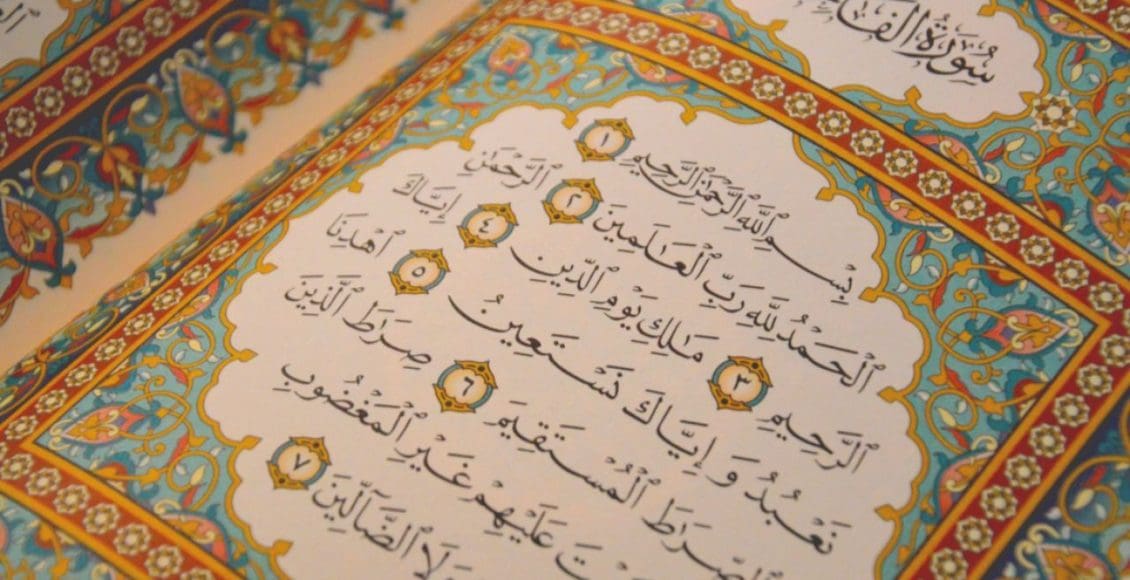 سُورَةُ الفَا
بِسْمِ ٱللَّهِ ٱلرَّحْمَٰنِ ٱلرَّحِيمِ ١
ٱلْحَمْدُ لِلَّهِ رَبِّ ٱلْعَٰلَمِينَ ٢ ٱلرَّحْمَٰنِ
ٱلرَّحِيمِ ٣ مَٰلِكِ يَوْمِ ٱلدِّينِ ٤ إِيَّاكَ
نَعْبُدُ وَإِيَّاكَ نَسْتَعِينُ ٥ ٱهْدِنَا
ٱلصِّرَٰطَ ٱلْمُسْتَقِيمَ ٦ صِرَٰطَ ٱلَّذِينَ
عَلَيْهِمْ غَيْرِ ٱلْمَغْضُوبِ
وَلَا ٱلضَّآلِّينَ ٧